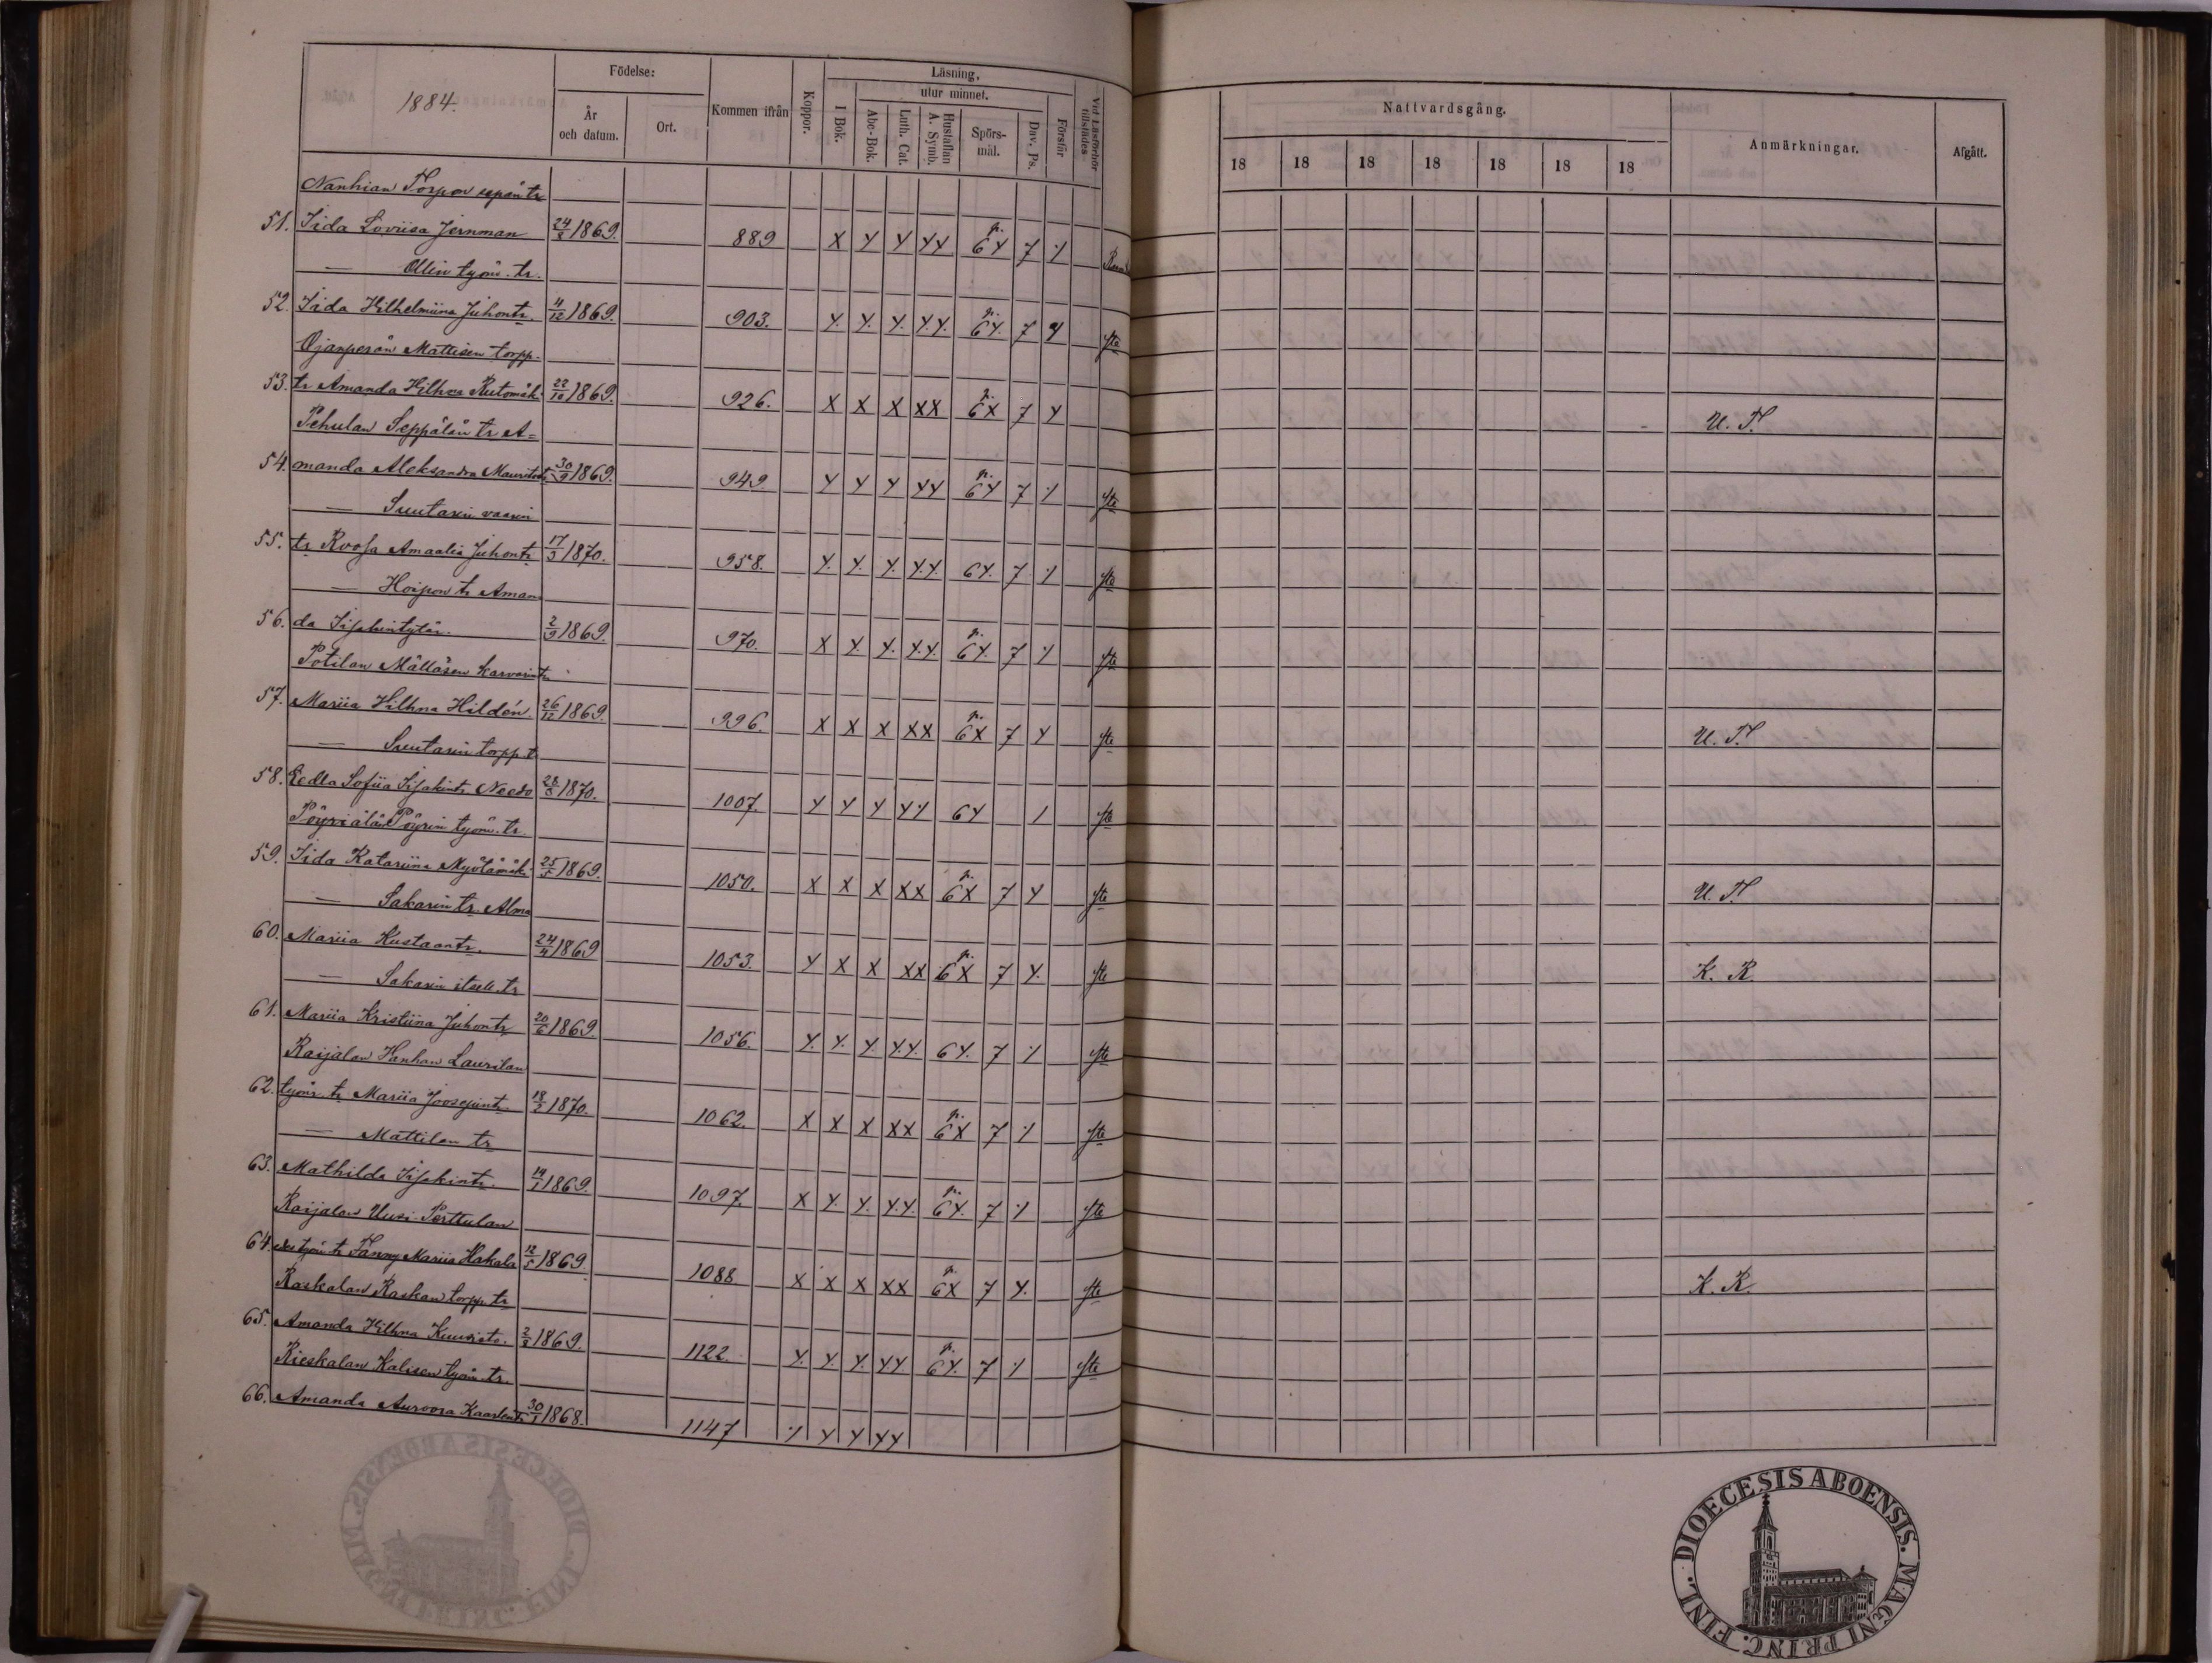 1884.
Födelse:
År och datum.
Ort.
Kommen ifrån
Koppor.
Läsning,
utur minnet.
I Bok.
Abc-Bok.
Luth. Cat.
Hustaflan A. Symb.
Spörs-mål.
Dav. Ps.
Förstår
Vid Läsförhör tillstädes
Nattvardsgång.
18 18 18 18 18 18 18
Anmärkningar.
Afgått.
51. Iida Loviisa Jernman 24/2 1869. 889 X Y Y YY 6Y 7
— Ollin työm. tr.
52. Iida Vilhelmiina Juhontr. 4/12 1869. 903. Y. Y. Y. Y.Y. 6Y. 7 Y
Ojanperän Mattisen torpp.
53. tr Amanda Vilhna Rutomäk 22/10 1869. 926. X X X XX 6X 7 Y U. T.
Pehulan Seppälän tr A=
54. manda Aleksandra 30/9 1869. 949. Y Y Y YY 6Y 7
— Suutarin vaarin
55. tr Roosa Amaalia Juhontr 17/3 1870. 958. Y. Y. Y. Y.Y. 6Y. 7
— Hoipon tr Aman
56. da Iisakintytär. 2/9 1869. 970. X Y Y. Y.Y. 6Y. 7
Potilan Mälläsen
57. Mariia Vilhna Hildén 26/12 1869. 996. X X X XX 6X 7 Y U. T.
— Suutarin torpp. t
58. Eedla Sofiia Iisakintr. 1870. 1007. Y Y Y YY 6Y
Pöyriälän Pöyrin työm. tr.
59. Iida Katariina Myötämäk 25/5 1869. 1050. X X X XX 6X 7 Y U. T.
— Sakarin tr. Alma
60. Mariia Kustaantr. 24/4 1869 1053. Y X X XX 6X 7 Y. K. R.
— Sakarin itsell. tr
61. Mariia Kristiina Juhontr 20/6 1869. 1056. Y. Y. Y Y.Y. 6Y. 7
Raijalan Hanhan Laurilan
62. työm. tr Mariia Joosepintr. 18/2 1870. 1062. X X X XX 6X 7
— Mattilan tr
63. Mathilda Iisakintr. 14/1 1869. 1097. X Y. Y. Y.Y. 6Y. 7
Raijalan Uusi-Perttulan
64. työm. tr Fanny Mariia Hakala 12/5 1869. 1088 X X X XX 6X 7 Y. K. R.
Raskalan Raskan torpp. tr
65. Amanda Vilhna Kuusisto. 2/2 1869. 1122. Y. Y. Y. YY. 6Y. 7
Rieskalan Kalisen työm. tr.
66. Amanda Auroora Kaarlontr 30/1 1868. 1147 Y Y YY
DIOECESIS ABOENSIS. MAGNI PRINC. FINL.